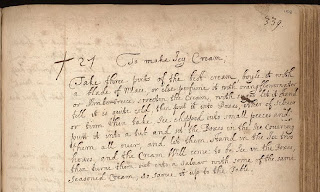 339
27 To make Icy Cream
Take three pints of the best cream, boyle it with
a blade of Mace, or else perfume it with orang flower water
or Ambergreece, sweeten the Cream, with sugar let it stand
till it is quite cold, then put it into Boxes, either of Silver
or tinn then take, Ice chopped into small peeces and
putt it into a tub and set the Boxes in the Ice Covering
them all over, and let them stand in the Ice two
hours, and the Cream Will come to be Ice in the Boxes,
then turne them out into a salvar with some of the same
Seasoned Cream, so sarve it up to the Table.